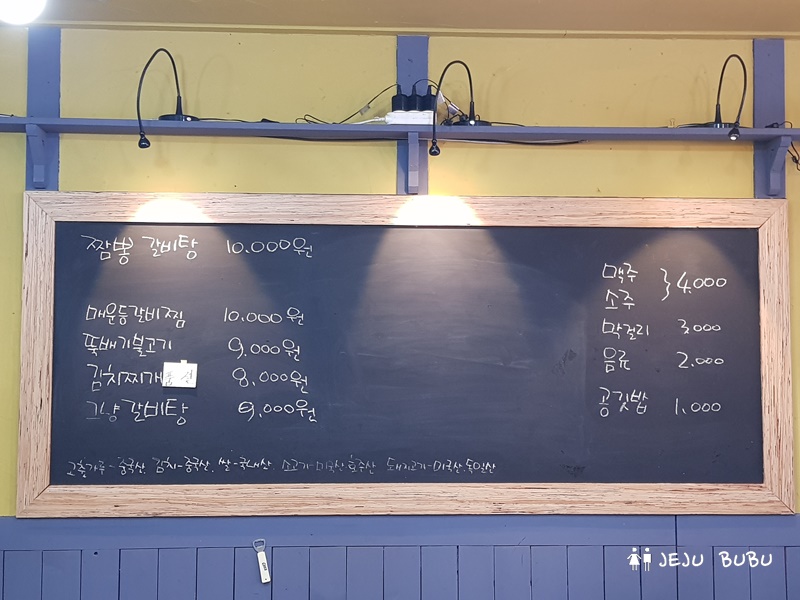 짬뽕 갈비탕 10.000원
매운등갈비찜 10.000원
뚝배기불고기 9.000원
김치찌개 품절 8.000원
그냥 갈비탕 9.000원
맥주
소주 } 4.000
막걸리 3.000
음료 2.000
공깃밥 1.000
고춧가루-중국산, 김치-중국산, 쌀-국내산, 소고기-미국산,호주산 돼지고기-미국산,독일산
JEJU BUBU